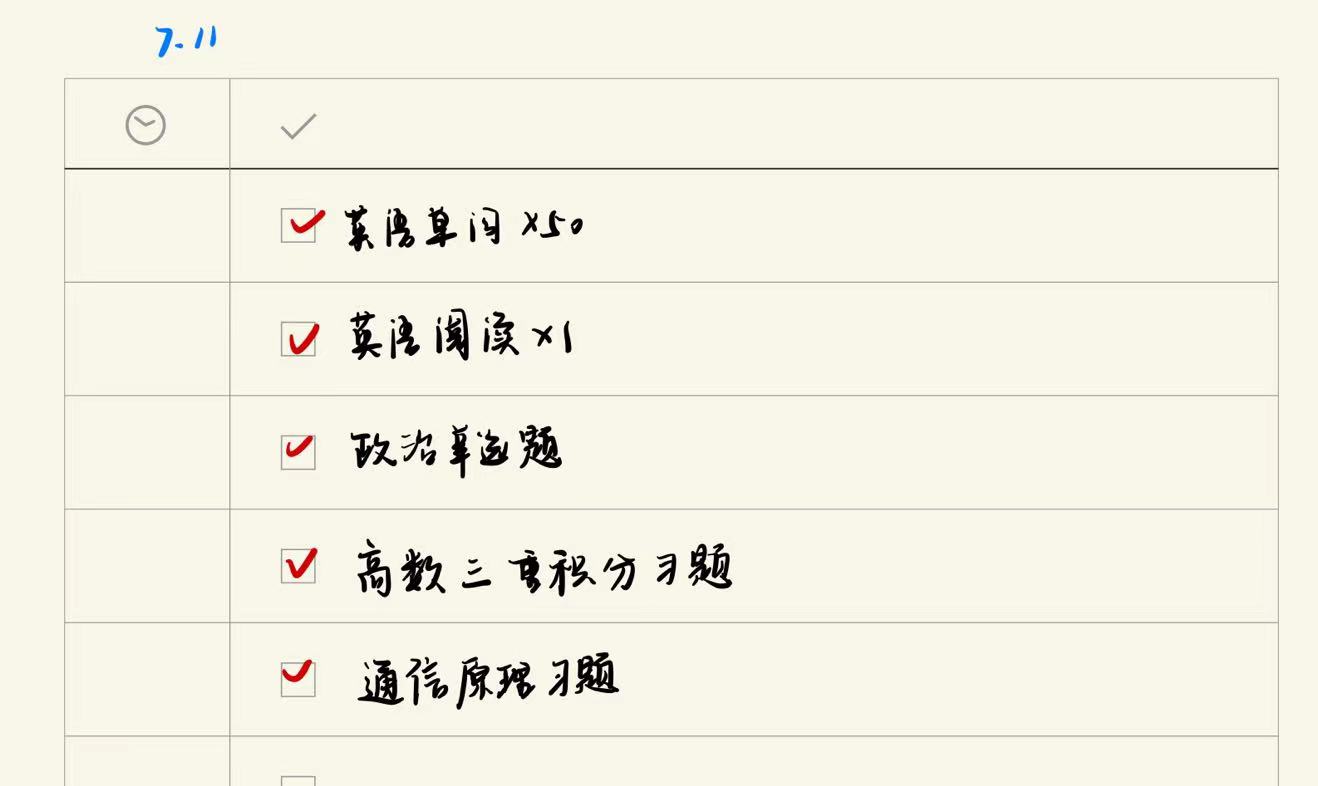 7.11
英语单词×50
英语阅读×1
政治单选题
高数三重积分习题
通信原理习题